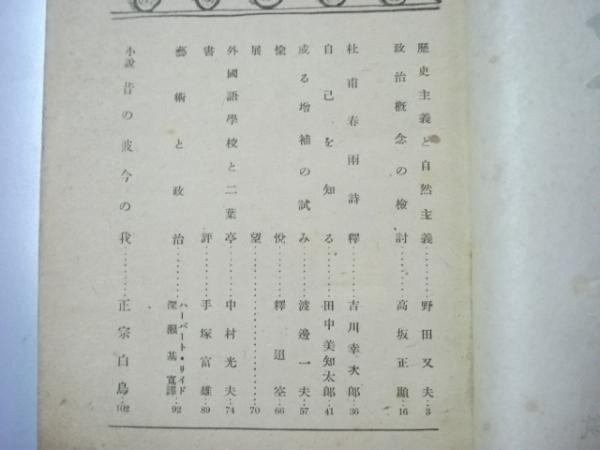 歴史主義と自然主義………野田又夫…3
政治概念の檢討………高坂正顯…16
杜甫春雨詩釋………吉川幸次郎…36
自己を知る………田中美知太郎…41
或る增補の試み………渡邊一夫…57
愉悅………釋迢空…66
展望………70
外國語學校と二葉亭………中村光夫…74
書評………手塚富雄…89
藝術と政治………ハーバート・リイド 深瀨基寬譯…92
小說 昔の波今の我………正宗白鳥…102